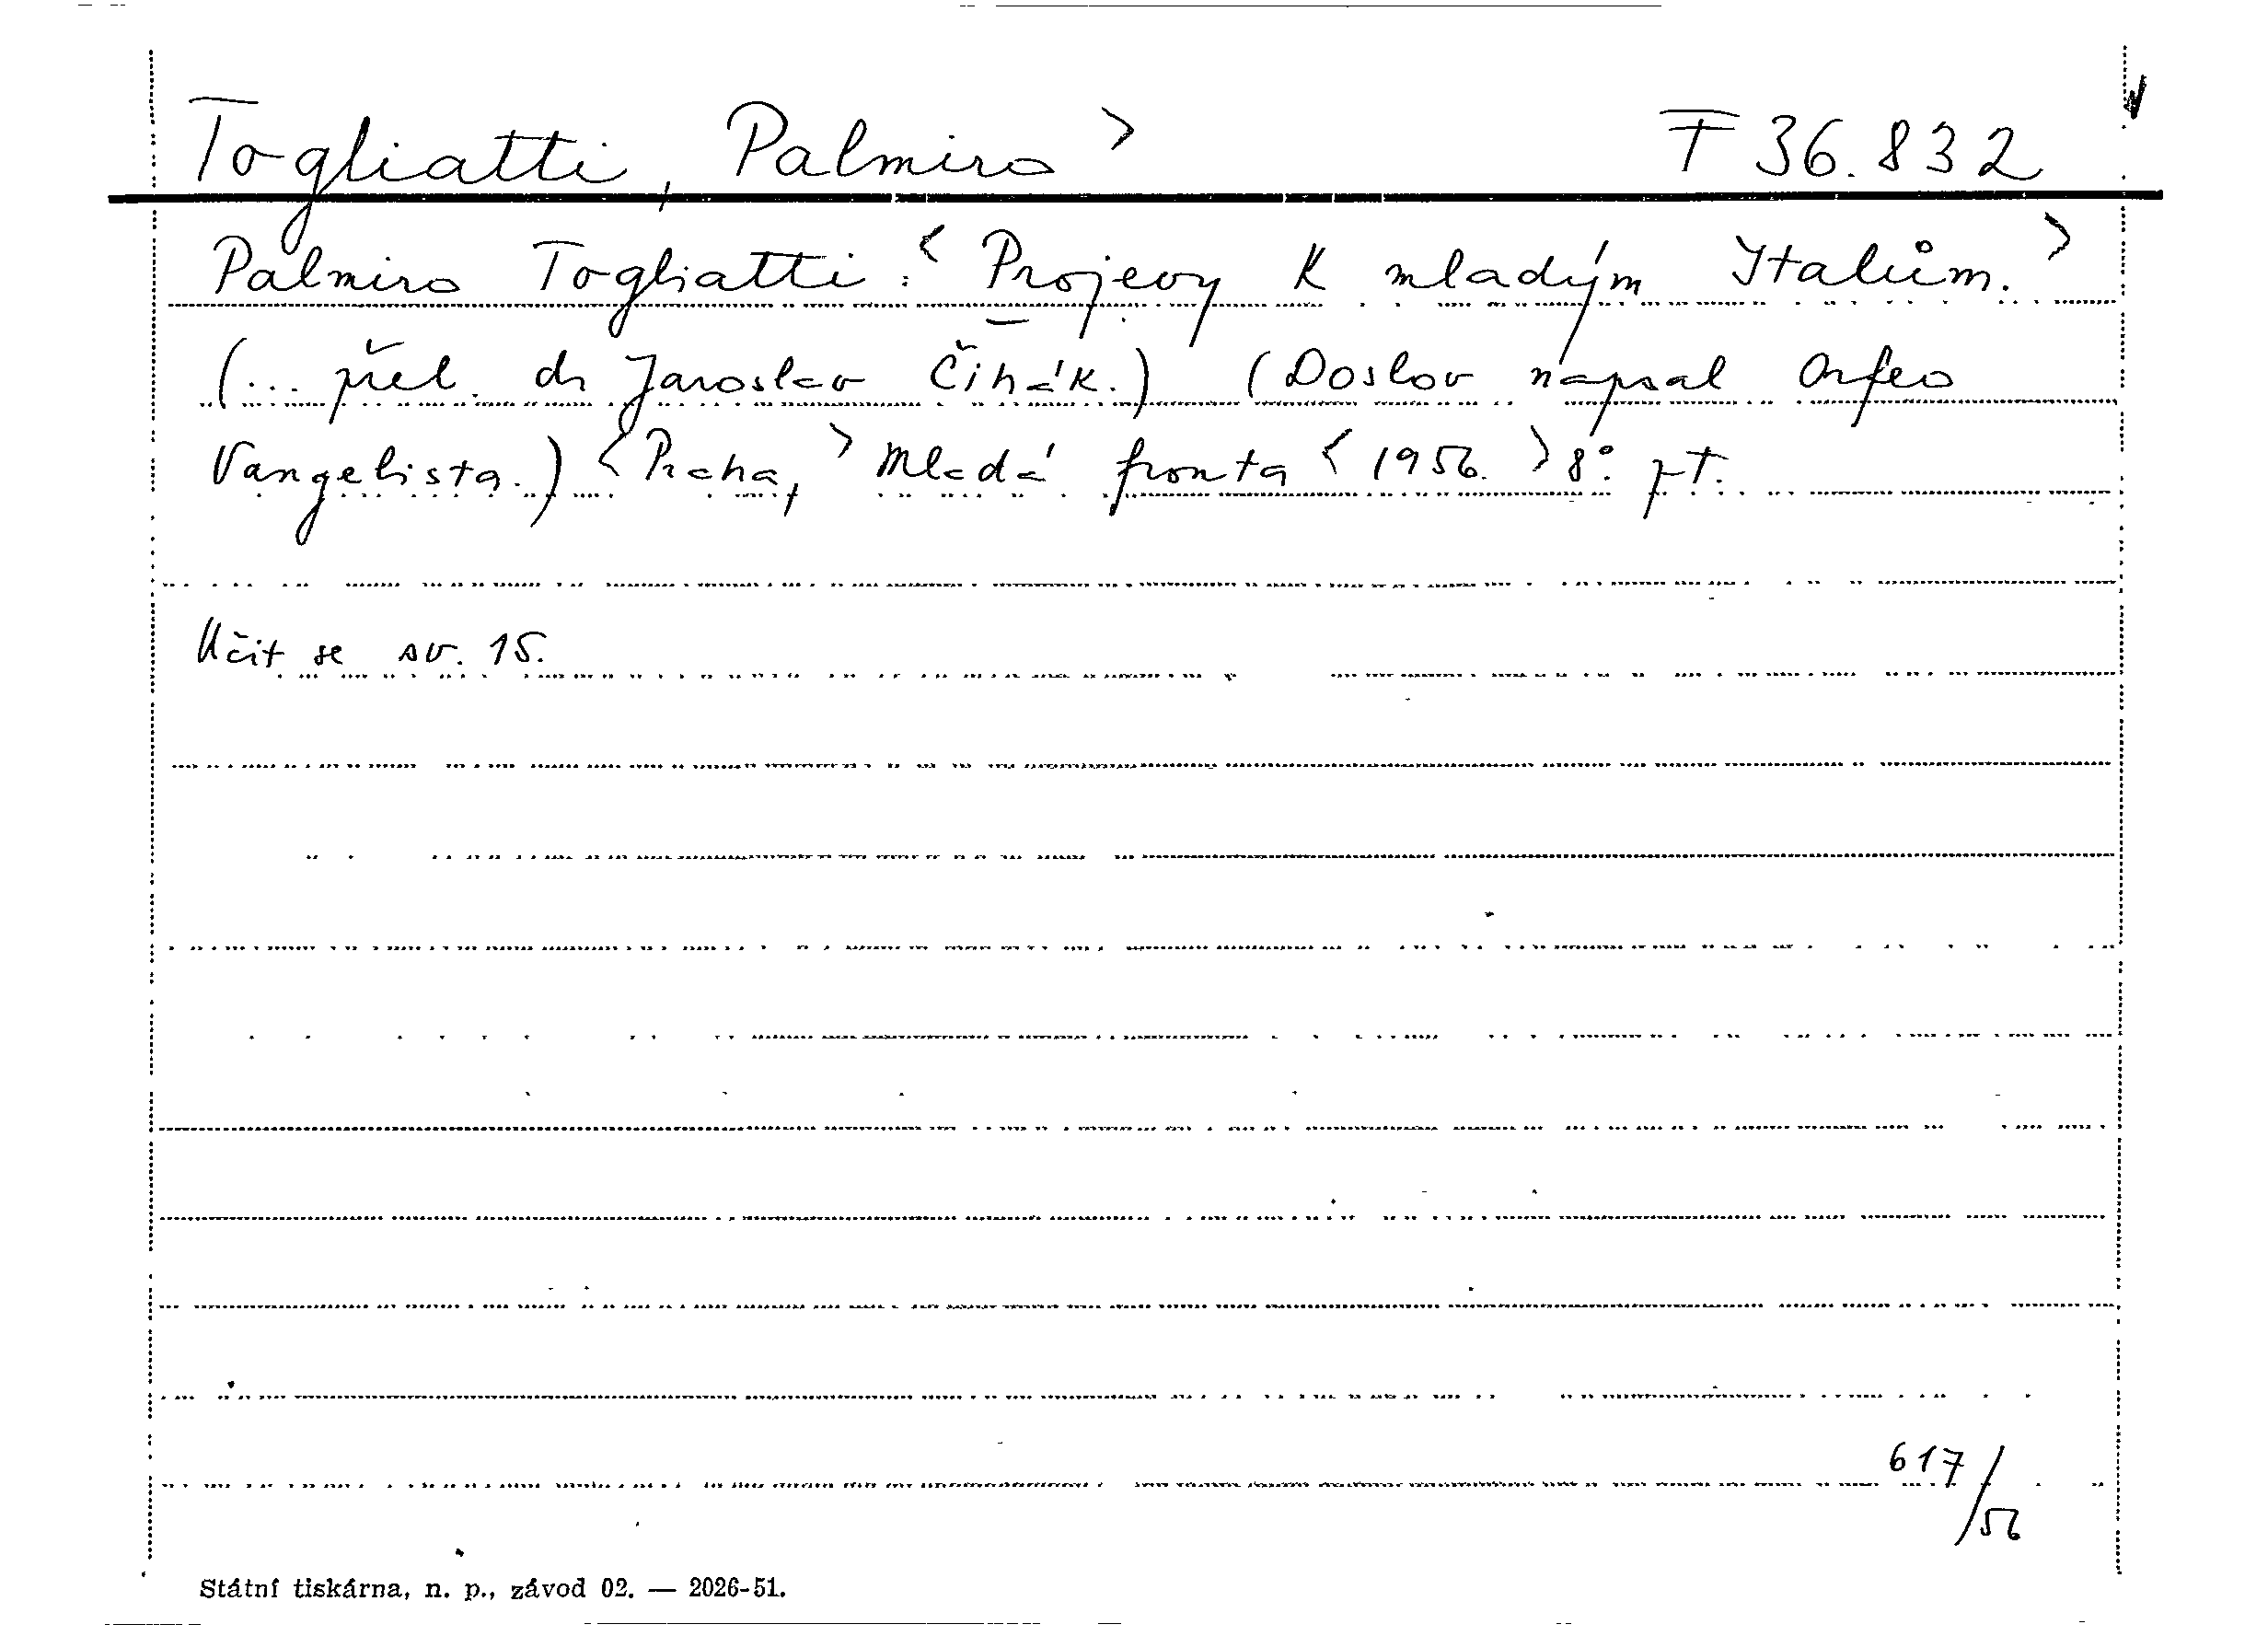 Togliatti, Palmiro > F 36.832
Palmiro Togliatti: < Projevy k mladým Italům. >
(... přel. dr Jaroslav Čihák.) (Doslov napsal Orfeo
Vangelista.) < Praha, > Mladá fronta < 1956. > 8°. pt.
Učit se sv. 15.
617/56
Státní tiskárna, n. p., závod 02. — 2026-51.